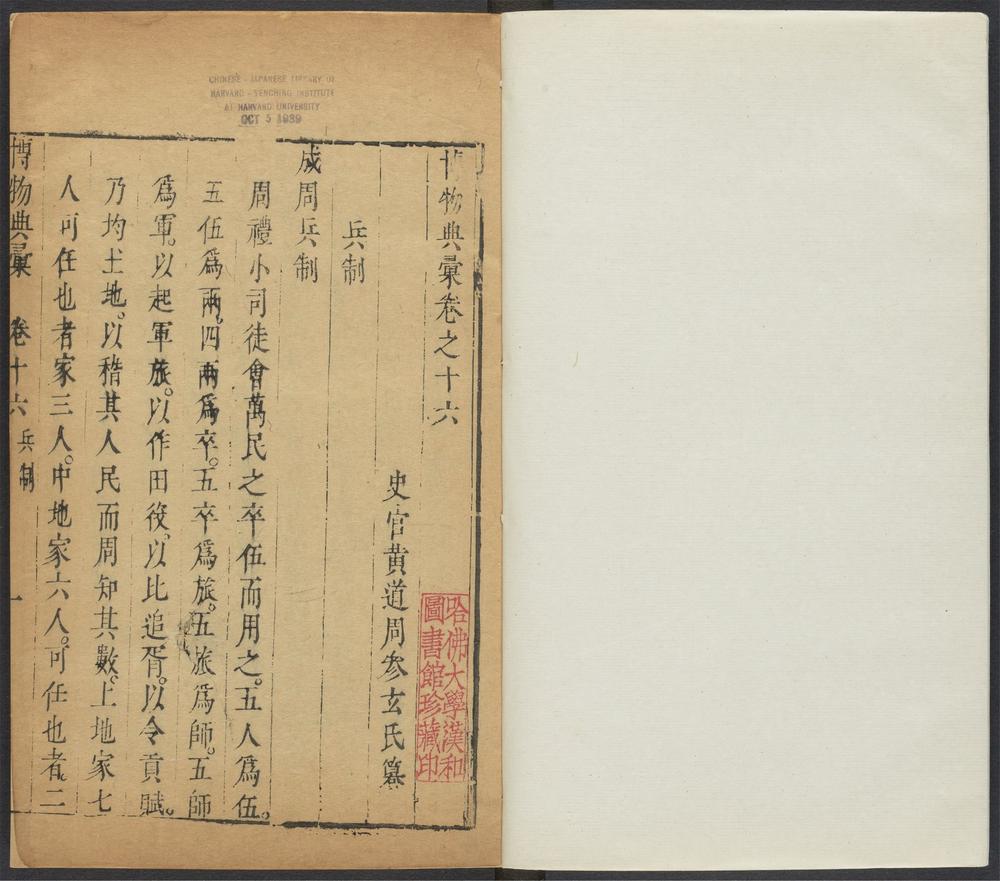 CHINESE - JAPANESE LIBRARY OF
HARVARD - YENCHING INSTITUTE
AT HARVARD UNIVERSITY
OCT 5 1939
博物典彙卷之十六
史官黃道周參玄氏纂
兵制
成周兵制
周禮小司徒會萬民之卒伍而用之。五人爲伍。
五伍爲兩。四兩爲卒。五卒爲旅。五旅爲師。五師
爲軍。以起軍旅。以作田役。以比追胥。以令貢賦。
乃均土地。以稽其人民而周知其數。上地家七
人可任也者家三人。中地家六人。可任也者。二
博物典彙 卷十六 兵制 一
哈佛大學漢和
圖書館珍藏印